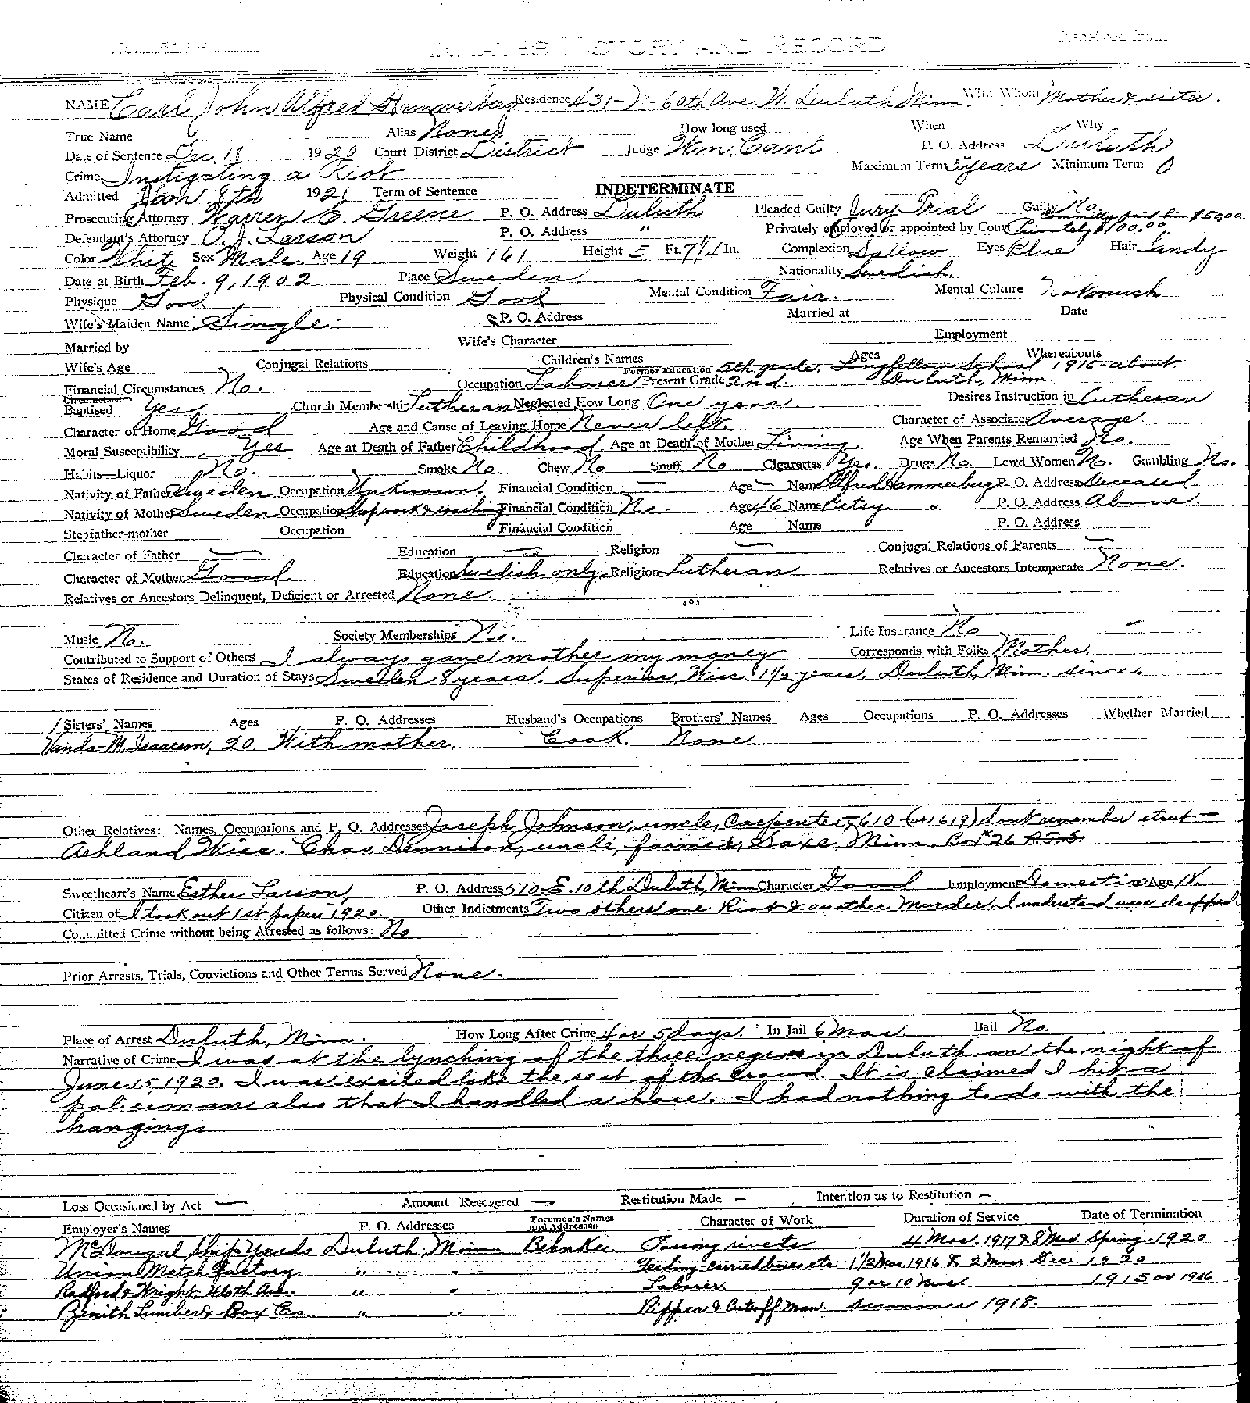 INMATES HISTORY AND RECORD
NAME Carl John Alfred Hammerberg Residence 431-N-60th Ave W. Duluth Minn With Whom Mother & sister.
True Name Alias None How long used When Why
Date of Sentence Dec. 1920 Court District District Judge Wm. Cant P. O. Address Duluth
Crime Instigating a Riot Maximum Term 5 years Minimum Term 0
Admitted Jan 9th 1921 Term of Sentence INDETERMINATE
Prosecuting Attorney Warren E. Greene P. O. Address Duluth Pleaded Guilty Jury Trial Guilty No.
Defendant's Attorney Larson P. O. Address " Privately employed or appointed by Court Privately $100.00
Color White Sex Male Age 19 Weight 161 Height 5 Ft. 7 In. Complexion Sallow Eyes Blue Hair Sandy
Date at Birth Feb. 9, 1902 Place Sweden Nationality Swedish
Physique Good Physical Condition Good Mental Condition Fair. Mental Culture
Wife's Maiden Name Single. P. O. Address Married at Date
Married by Wife's Character Employment
Wife's Age Conjugal Relations Children's Names Ages Whereabouts
5th grade, Longfellow School 1916 about
Financial Circumstances No. Occupation Laborer Present Grade 2nd. Duluth, Minn
Baptised Yes Church Membership Lutheran Neglected How Long One year Desires Instruction in Lutheran
Character of Home Good Age and Cause of Leaving Home Never left. Character of Associates Average.
Moral Susceptibility Yes Age at Death of Father Childhood Age at Death of Mother Living. Age When Parents Remarried No.
Habits—Liquor No. Smoke No Chew No Snuff No Cigarettes Yes. Drugs No Lewd Women No. Gambling No.
Nativity of Father Sweden Occupation Unknown. Financial Condition — Age — Name Alfred Hammerberg P. O. Address Deceased
Nativity of Mother Sweden Occupation Financial Condition No Age 46 Name Betsy " P. O. Address Above
Stepfather-mother Occupation Financial Condition Age Name P. O. Address
Character of Father — Education — Religion — Conjugal Relations of Parents —
Character of Mother Good Education Swedish only. Religion Lutheran Relatives or Ancestors Intemperate None.
Relatives or Ancestors Delinquent, Deficient or Arrested None
Music No. Society Memberships No. Life Insurance No
Contributed to Support of Others I always gave mother my money Corresponds with Folks Mother
States of Residence and Duration of Stays Sweden 8 years, Superior, Wisc 1½ years, Duluth, Minn. since.
Sisters' Names Ages P. O. Addresses Husband's Occupations Brothers' Names Ages Occupations P. O. Addresses Whether Married
20 With mother. Cook None
Other Relatives: Names, Occupations and P. O. Addresses Joseph Johnson, uncle, Carpenter, 610 (or 1619) don't remember street —
Ashland Wisc. Chas Dennison, uncle, farmer, Minn. Box # 26
Sweetheart's Name Esther Larson, P. O. Address 510 E. 10th Duluth, Minn Character Good Employment Domestic Age 18
Citizen of I took out 1st papers 1920 Other Indictments Two others one Riot & another Murder. I understand were dropped
Committed Crime without being Arrested as follows: No
Prior Arrests, Trials, Convictions and Other Terms Served None.
Place of Arrest Duluth, Minn. How Long After Crime 4 or 5 days. In Jail 6 mos Bail No
Narrative of Crime I was at the lynching of the three negroes in Duluth on the night of
June 15 1920. I was excited like the rest of the crowd. It is claimed I hit a
policeman also that I handled a hose. I had nothing to do with the
hangings
Loss Occasioned by Act — Amount Recovered — Restitution Made — Intention as to Restitution —
Employer's Names P. O. Addresses Foremen's Names and Addresses Character of Work Duration of Service Date of Termination
McDougal Ship Yards Duluth, Minn Behnke rivets 4 Mos. 1917 & 8 Mos Spring 1920
Union Match Factory " " 1½ Mos 1916 & 2 Mos Dec. 1920
Radford & Wright " " Laborer 9 or 10 mos 1915 or 1916
Zenith Lumber & Box Co. " " Ripper & Cutoff Man summer 1918.